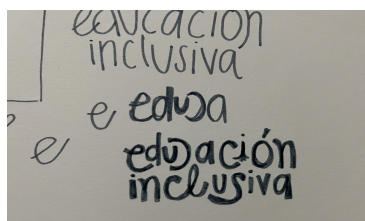 educación
inclusiva
e edusa
e
educación
inclusiva